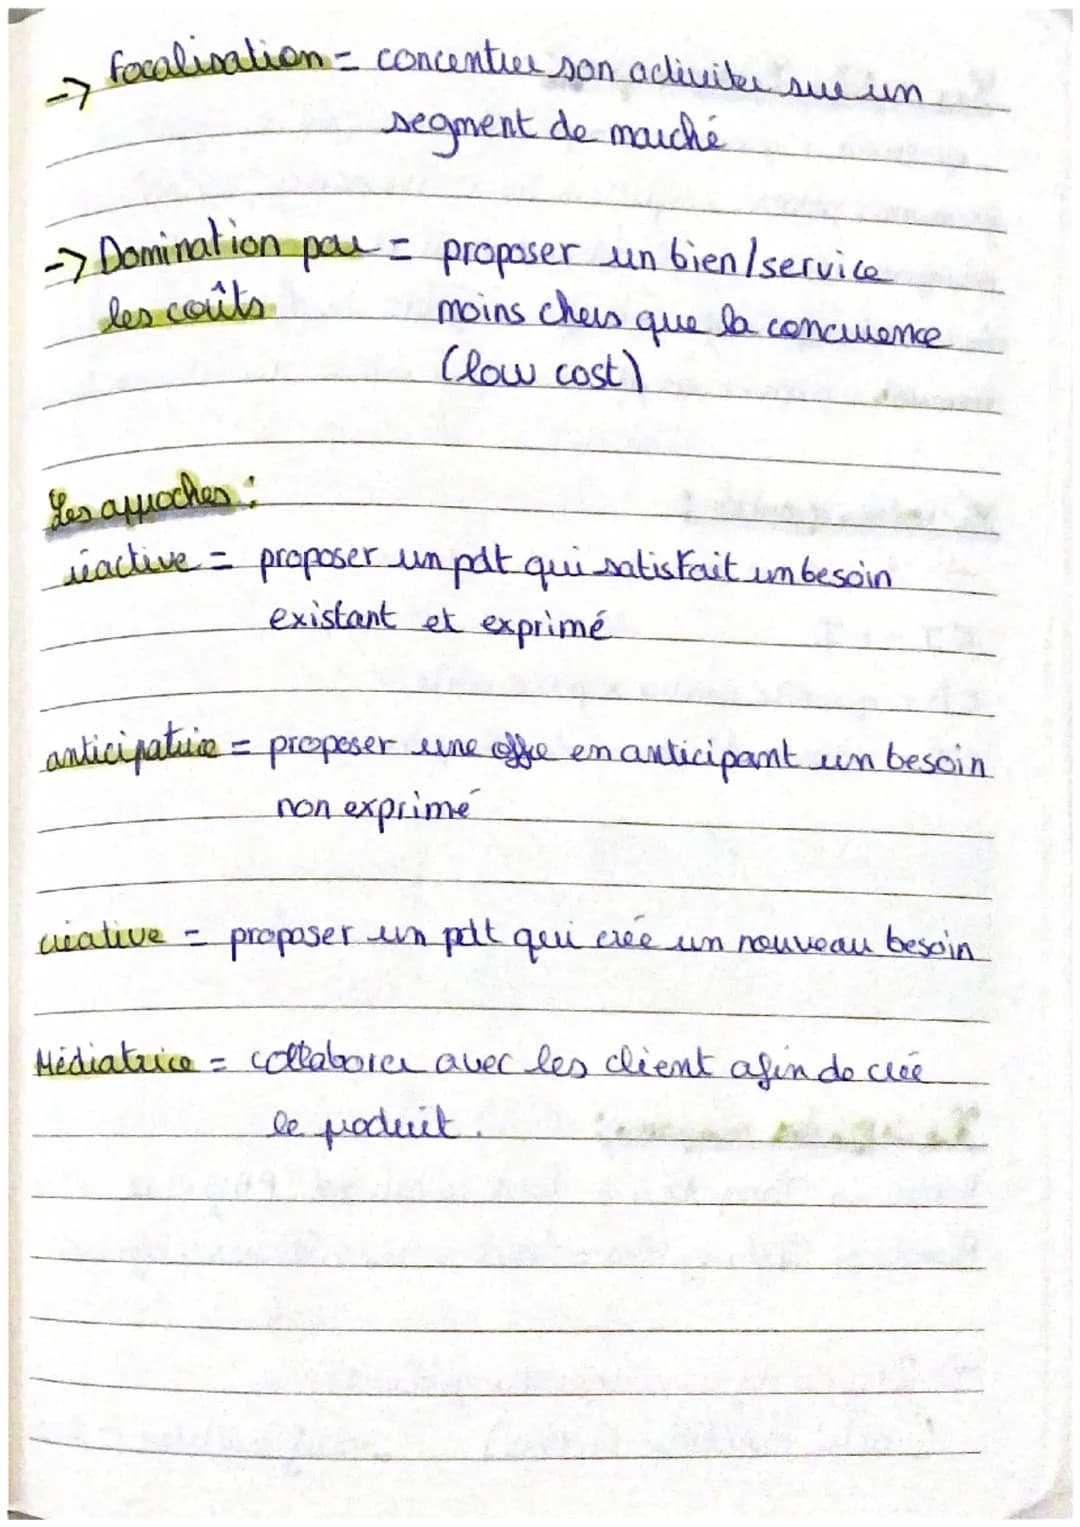 -> Focalisation = concentrer son activiter sur un
segment de marché
-> Domination par = proposer un bien/service
les coûts moins chers que la concurrence
(low cost)
Les approches :
réactive = proposer un pdt qui satisfait un besoin
existant et exprimé
anticipatrice = proposer une offre en anticipant un besoin
non exprimé
créative = proposer un pdt qui crée un nouveau besoin
Médiatrice = collaborer avec les client afin de créé
le produit.